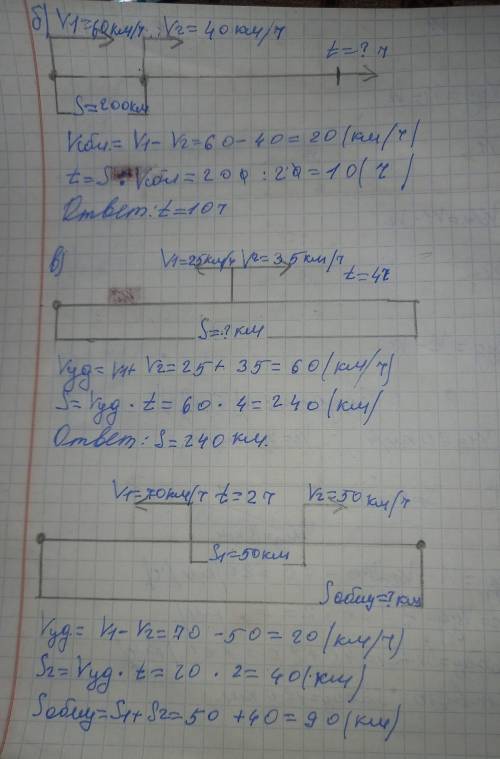 б) V1=60км/ч V2=40км/ч
t=? ч
S=200км
Vсбл= V1-V2=60-40=20(км/ч)
t=S:Vсбл=200:20=10(ч)
Ответ: t=10ч
в) V1=25км/ч V2=35км/ч
t=4ч
S=? км
Vуд=V1+V2=25+35=60(км/ч)
S=Vуд·t=60·4=240(км)
Ответ: S=240км.
V1=70км/ч t=2ч V2=50км/ч
S1=50км
Sобщ=?км
Vуд= V1-V2=70-50=20(км/ч)
S2=Vуд·t=20·2=40(км)
Sобщ=S1+S2=50+40=90(км)